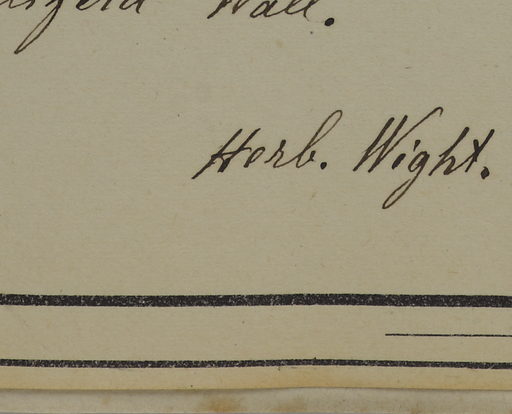 Wall.
Herb. Wight.